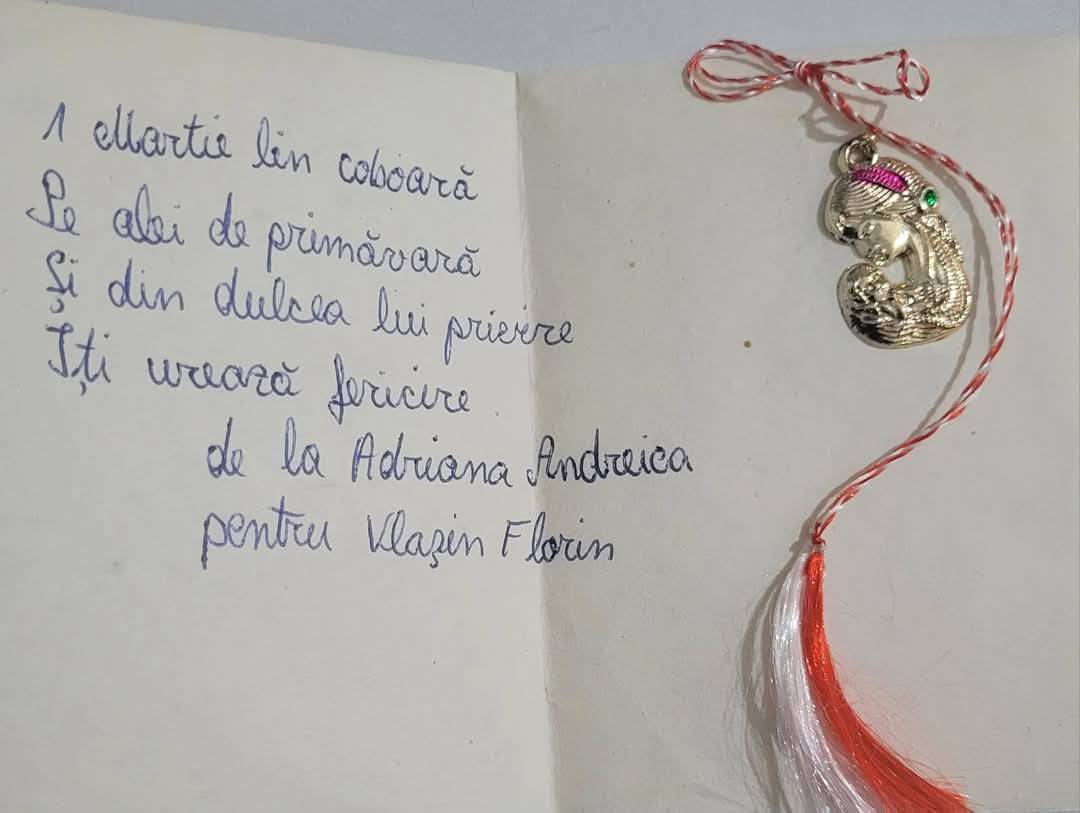 1 Martie lin coboară
Pe alei de primăvară
Și din dulcea lui privire
Îți urează fericire.
de la Adriana Andreica
pentru Vlașin Florin